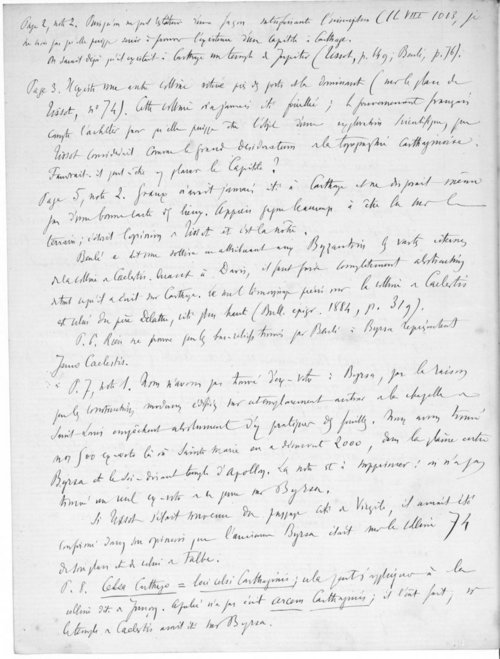 Page 2, note 2. Puisqu'on ne peut restituer d'une façon satisfaisante l'inscription (CIL VIII 1013, je
ne vois pas qu'elle puisse servir à prouver l'existence d'un Capitole à Carthage.
On savait déjà qu'il existait à Carthage un temple de Jupiter (Tissot, p. 649, Beulé, p. 76).
Page 3. Il existe une autre colline voisine près des ports et la dominant (sur le plan de
Tissot, nº 74). Cette colline n'a jamais été fouillée; le gouvernement français
compte l'acheter pour qu'elle puisse être l'objet d'une exploration scientifique, que
Tissot considérait comme le grand desideratum de la topographie Carthaginoise.
Faudrait-il peut-être y placer le Capitole?
Page 5, note 2. Graux n'avait jamais été à Carthage et ne disposait même
pas d'une bonne carte des lieux. Appien gagne beaucoup à être lu sur le
terrain; c'était l'opinion de Tissot et c'est la nôtre.
Beulé a dit une sottise en attribuant aux Byzantins les vastes citernes
de la colline de Caelestis. Quant à Davis, il faut faire complètement abstraction
de tout ce qu'il a écrit sur Carthage. Le seul témoignage précis sur la colline de Caelestis
est celui du père Delattre, cité plus haut (Bull. épigr. 1884, p. 319).
P. 6. Rien ne prouve que les bas-reliefs trouvés par Beulé à Byrsa représentent
Juno Caelestis.
P. 7, note 1. Nous n'avons pas trouvé d'ex-voto à Byrsa, par la raison
que les constructions modernes édifiées sur l'emplacement autour de la chapelle de
Saint Louis empêchent absolument d'y pratiquer des fouilles. Nous avons trouvé
nos 500 ex-voto là où Sainte Marie en a découvert 2000, dans la plaine entre
Byrsa et le soi-disant temple d'Apollon. La note est à supprimer: on n'a pas
trouvé un seul ex-voto de ce genre sur Byrsa.
Si Tissot s'était souvenu du passage cité de Virgile, il aurait été
confirmé dans son opinion que l'ancienne Byrsa était sur la colline 74
de son plan et de celui de Falbe.
P. 8. Celsa Carthago = loci celsi Carthaginis; cela peut s'appliquer à la
colline dite de Junon. Apulée n'a pas écrit arcem Carthaginis; il l'eût fait, si
le temple de Caelestis avait été sur Byrsa.